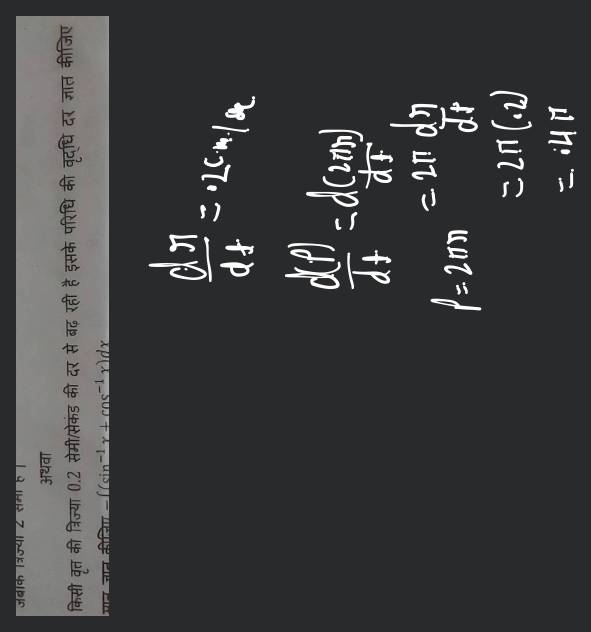 जबकि त्रिज्या 2 सेमी है |
अथवा
किसी वृत की त्रिज्या 0.2 सेमी/सेकंड की दर से बढ़ रही है इसके परिधि की वृद्धि दर ज्ञात कीजिए
मान ज्ञात कीजिए - ∫(sin⁻¹ x + cos⁻¹ x)dx
dr/dt = .2 c.m./se
d(P)/dt = d(2πr)/dt
P = 2πr = 2π dr/dt
= 2π(.2)
= .4π